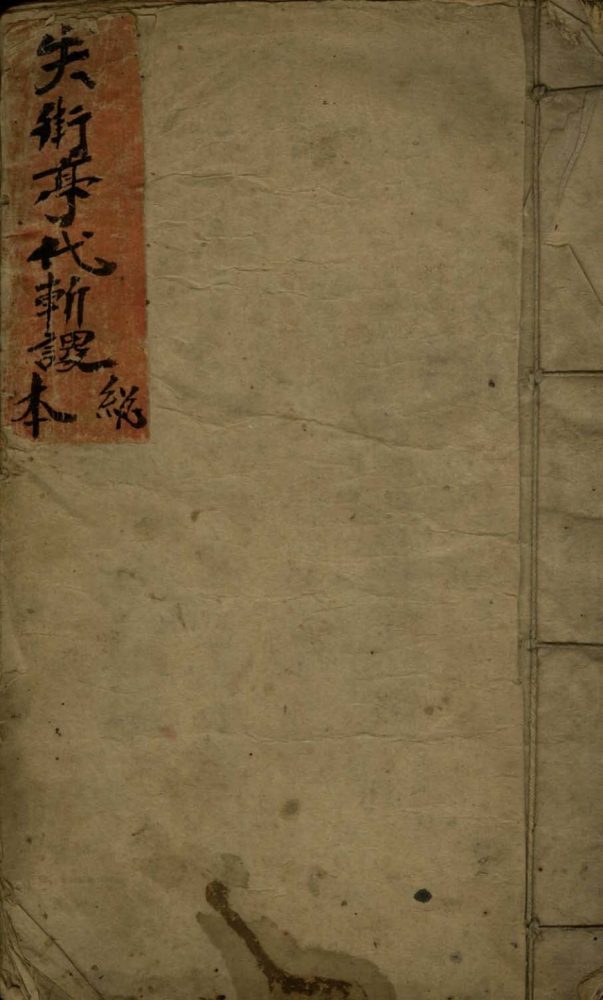 失街亭代斬謖
総本